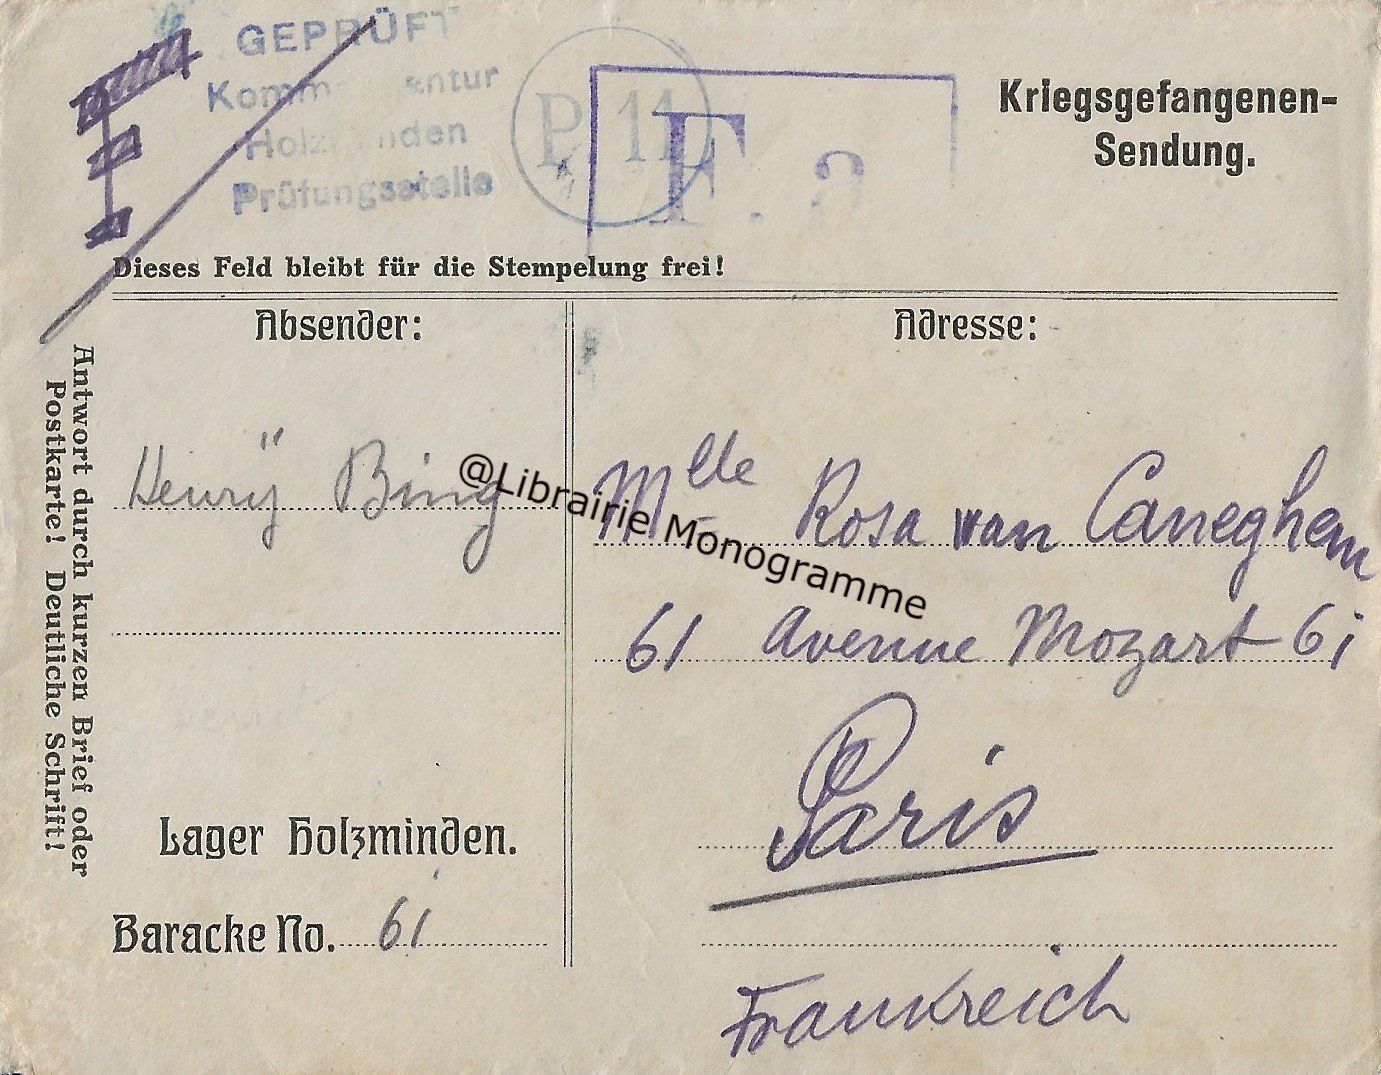 GEPRÜFT
Kommandantur
Holzminden
Prüfungsstelle
P. 11
F. a
Kriegsgefangenen-
Sendung.
Dieses Feld bleibt für die Stempelung frei!
Absender:
Henrÿ Bing
Lager Holzminden.
Baracke No. 61
Antwort durch kurzen Brief oder
Postkarte! Deutliche Schrift!
Adresse:
Mlle Rosa van Caneghem
61 Avenue Mozart 61
Paris
Frankreich
@Librairie Monogramme